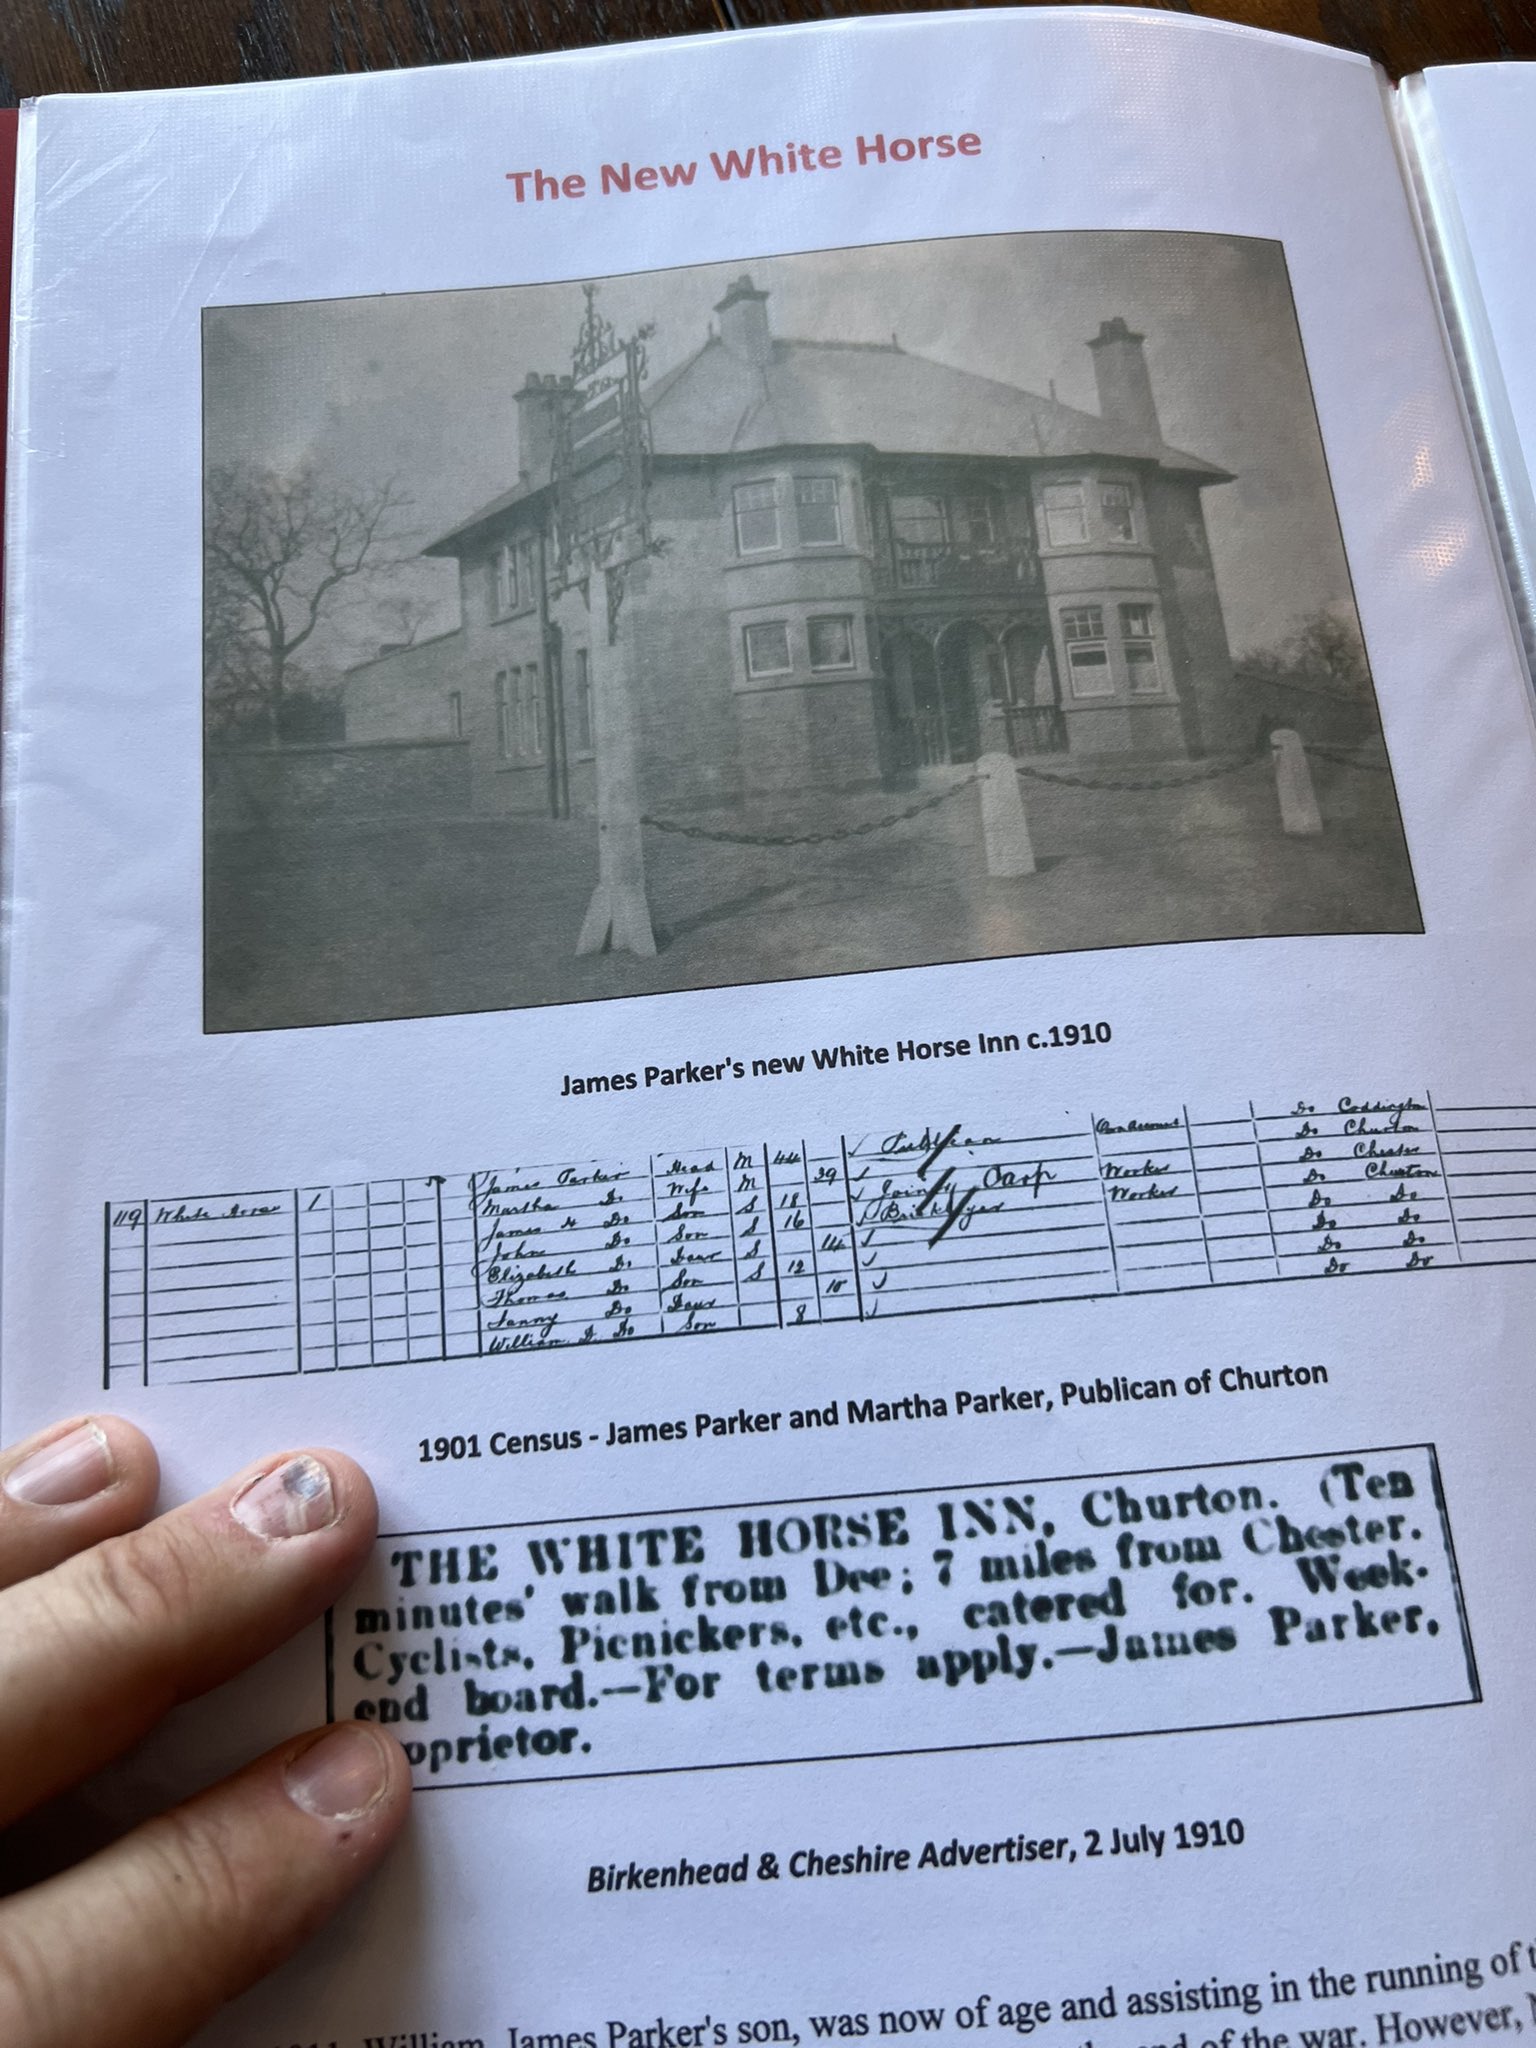 The New White Horse
James Parker's new White Horse Inn c.1910
119 White Horse 1 James Parker Head M 44 Publican Do Coddington
Martha Do Wife M 39 Do Churton
James H Do Son S 18 Carp Worker Do Chester
John Do Son S 16 Bricklayer Worker Do Churton
Elizabeth Do Daur S 14 Do Do
Thomas Do Son S 12 Do Do
Fanny Do Daur 10 Do Do
William Do Son 8 Do Do
1901 Census - James Parker and Martha Parker, Publican of Churton
THE WHITE HORSE INN, Churton. (Ten
minutes' walk from Dee; 7 miles from Chester.
Cyclists, Picnickers, etc., catered for. Week-
end board.—For terms apply.—James Parker,
oprietor.
Birkenhead & Cheshire Advertiser, 2 July 1910
William, James Parker's son, was now of age and assisting in the running of
end of the war. However,